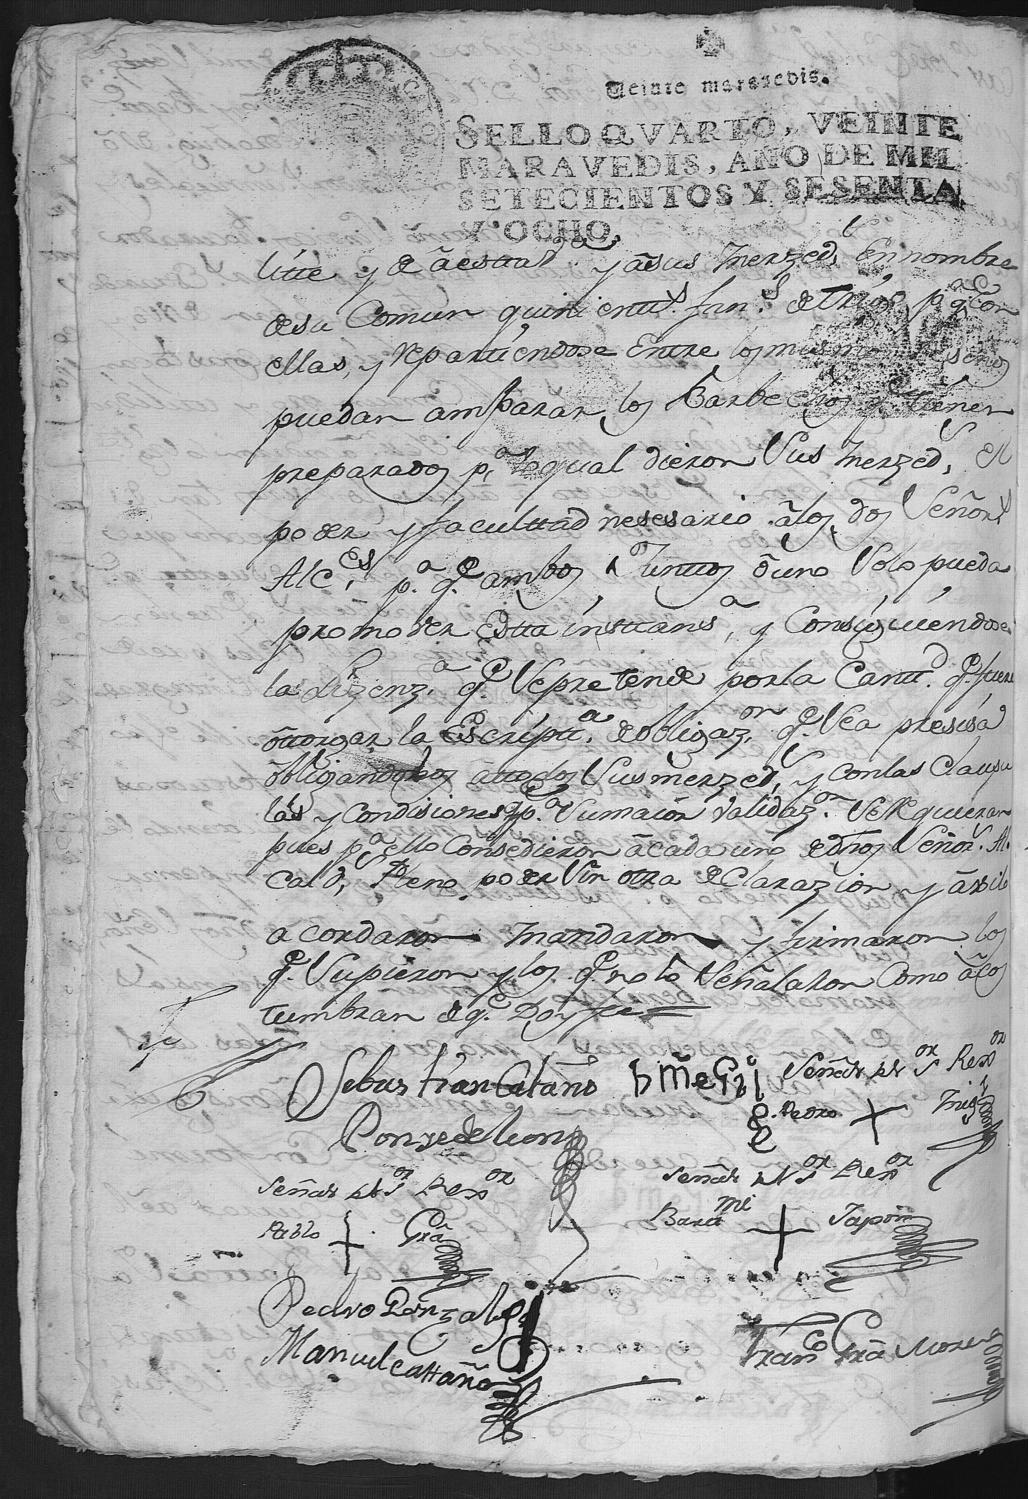 Veinte maravedis.
SELLO QVARTO, VEINTE
MARAVEDIS, AÑO DE MIL
SETECIENTOS Y SESENTA
Y OCHO.
litte y de aestta y a sus merzeds En nombre
de su Comun quinientts fans de trigo p q Con
ellas, y repartiendose Entre los mismos
puedan amparar los Barbechos q tienen
preparados pa lo qual dieron Sus merzeds, el
poder y facultad nesesario a los dos Señors
Alces pa q ambos Juntos ô uno Solo pueda
promover Estta insttansa, y Consiguiendose
la Lizenza q Se pretende por la Cantd q fuere
ôttorgar la Escriptta de obligazn q Sea presisa
obligandolos a ttodos Sus merzeds, y con las Clausu
las y Condisiones q pa Su maior validazn Se Requieran
pues pa ello Consedieron a cada uno de dhos Señors Al
calds, Pleno poder Sin otra declarazion y asi lo
acordaron mandaron y firmaron los
q Supieron y los q no lo Señalaron Como acos
tumbran de q Doy fee
Sebastian Cataño Bme Gil Señal del Sor Rexor
Ponze de leon Pedro + Inigz
Señal del Sor Rexor Señal del Sor Rexor
Pablo + Gra Bartme + Japon
Pedro Gonzales
Manuel cattaño Frano Gra More